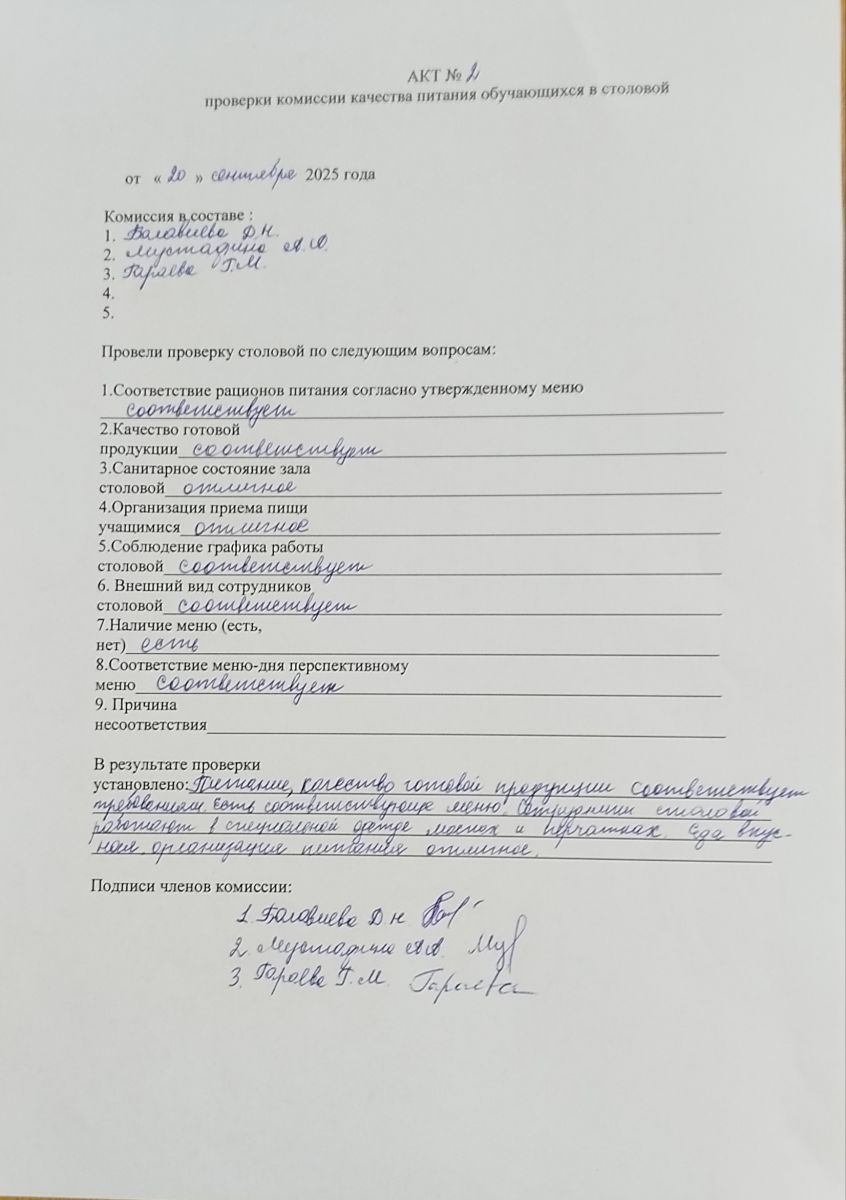 АКТ № 2
проверки комиссии качества питания обучающихся в столовой
от « 20 » сентября 2025 года
Комиссия в составе :
1. Валавиева Д.Н.
2. Мустафина А.А.
3. Гараева Г.М.
4.
5.
Провели проверку столовой по следующим вопросам:
1.Соответствие рационов питания согласно утвержденному меню
соответствует
2.Качество готовой
продукции соответствует
3.Санитарное состояние зала
столовой отличное
4.Организация приема пищи
учащимися отличное
5.Соблюдение графика работы
столовой соответствует
6. Внешний вид сотрудников
столовой соответствует
7.Наличие меню (есть,
нет) есть
8.Соответствие меню-дня перспективному
меню соответствует
9. Причина
несоответствия
В результате проверки
установлено: Питание, качество готовой продукции соответствует
требованиям. Есть соответствующие меню. Сотрудники столовой
работают в специальной одежде масках и перчатках. Еда вкус-
ная, организация питания отличное.
Подписи членов комиссии:
1. Д.Н.
2. Мустафина А.А. Муф
3. Гараева Г.М. Гараева